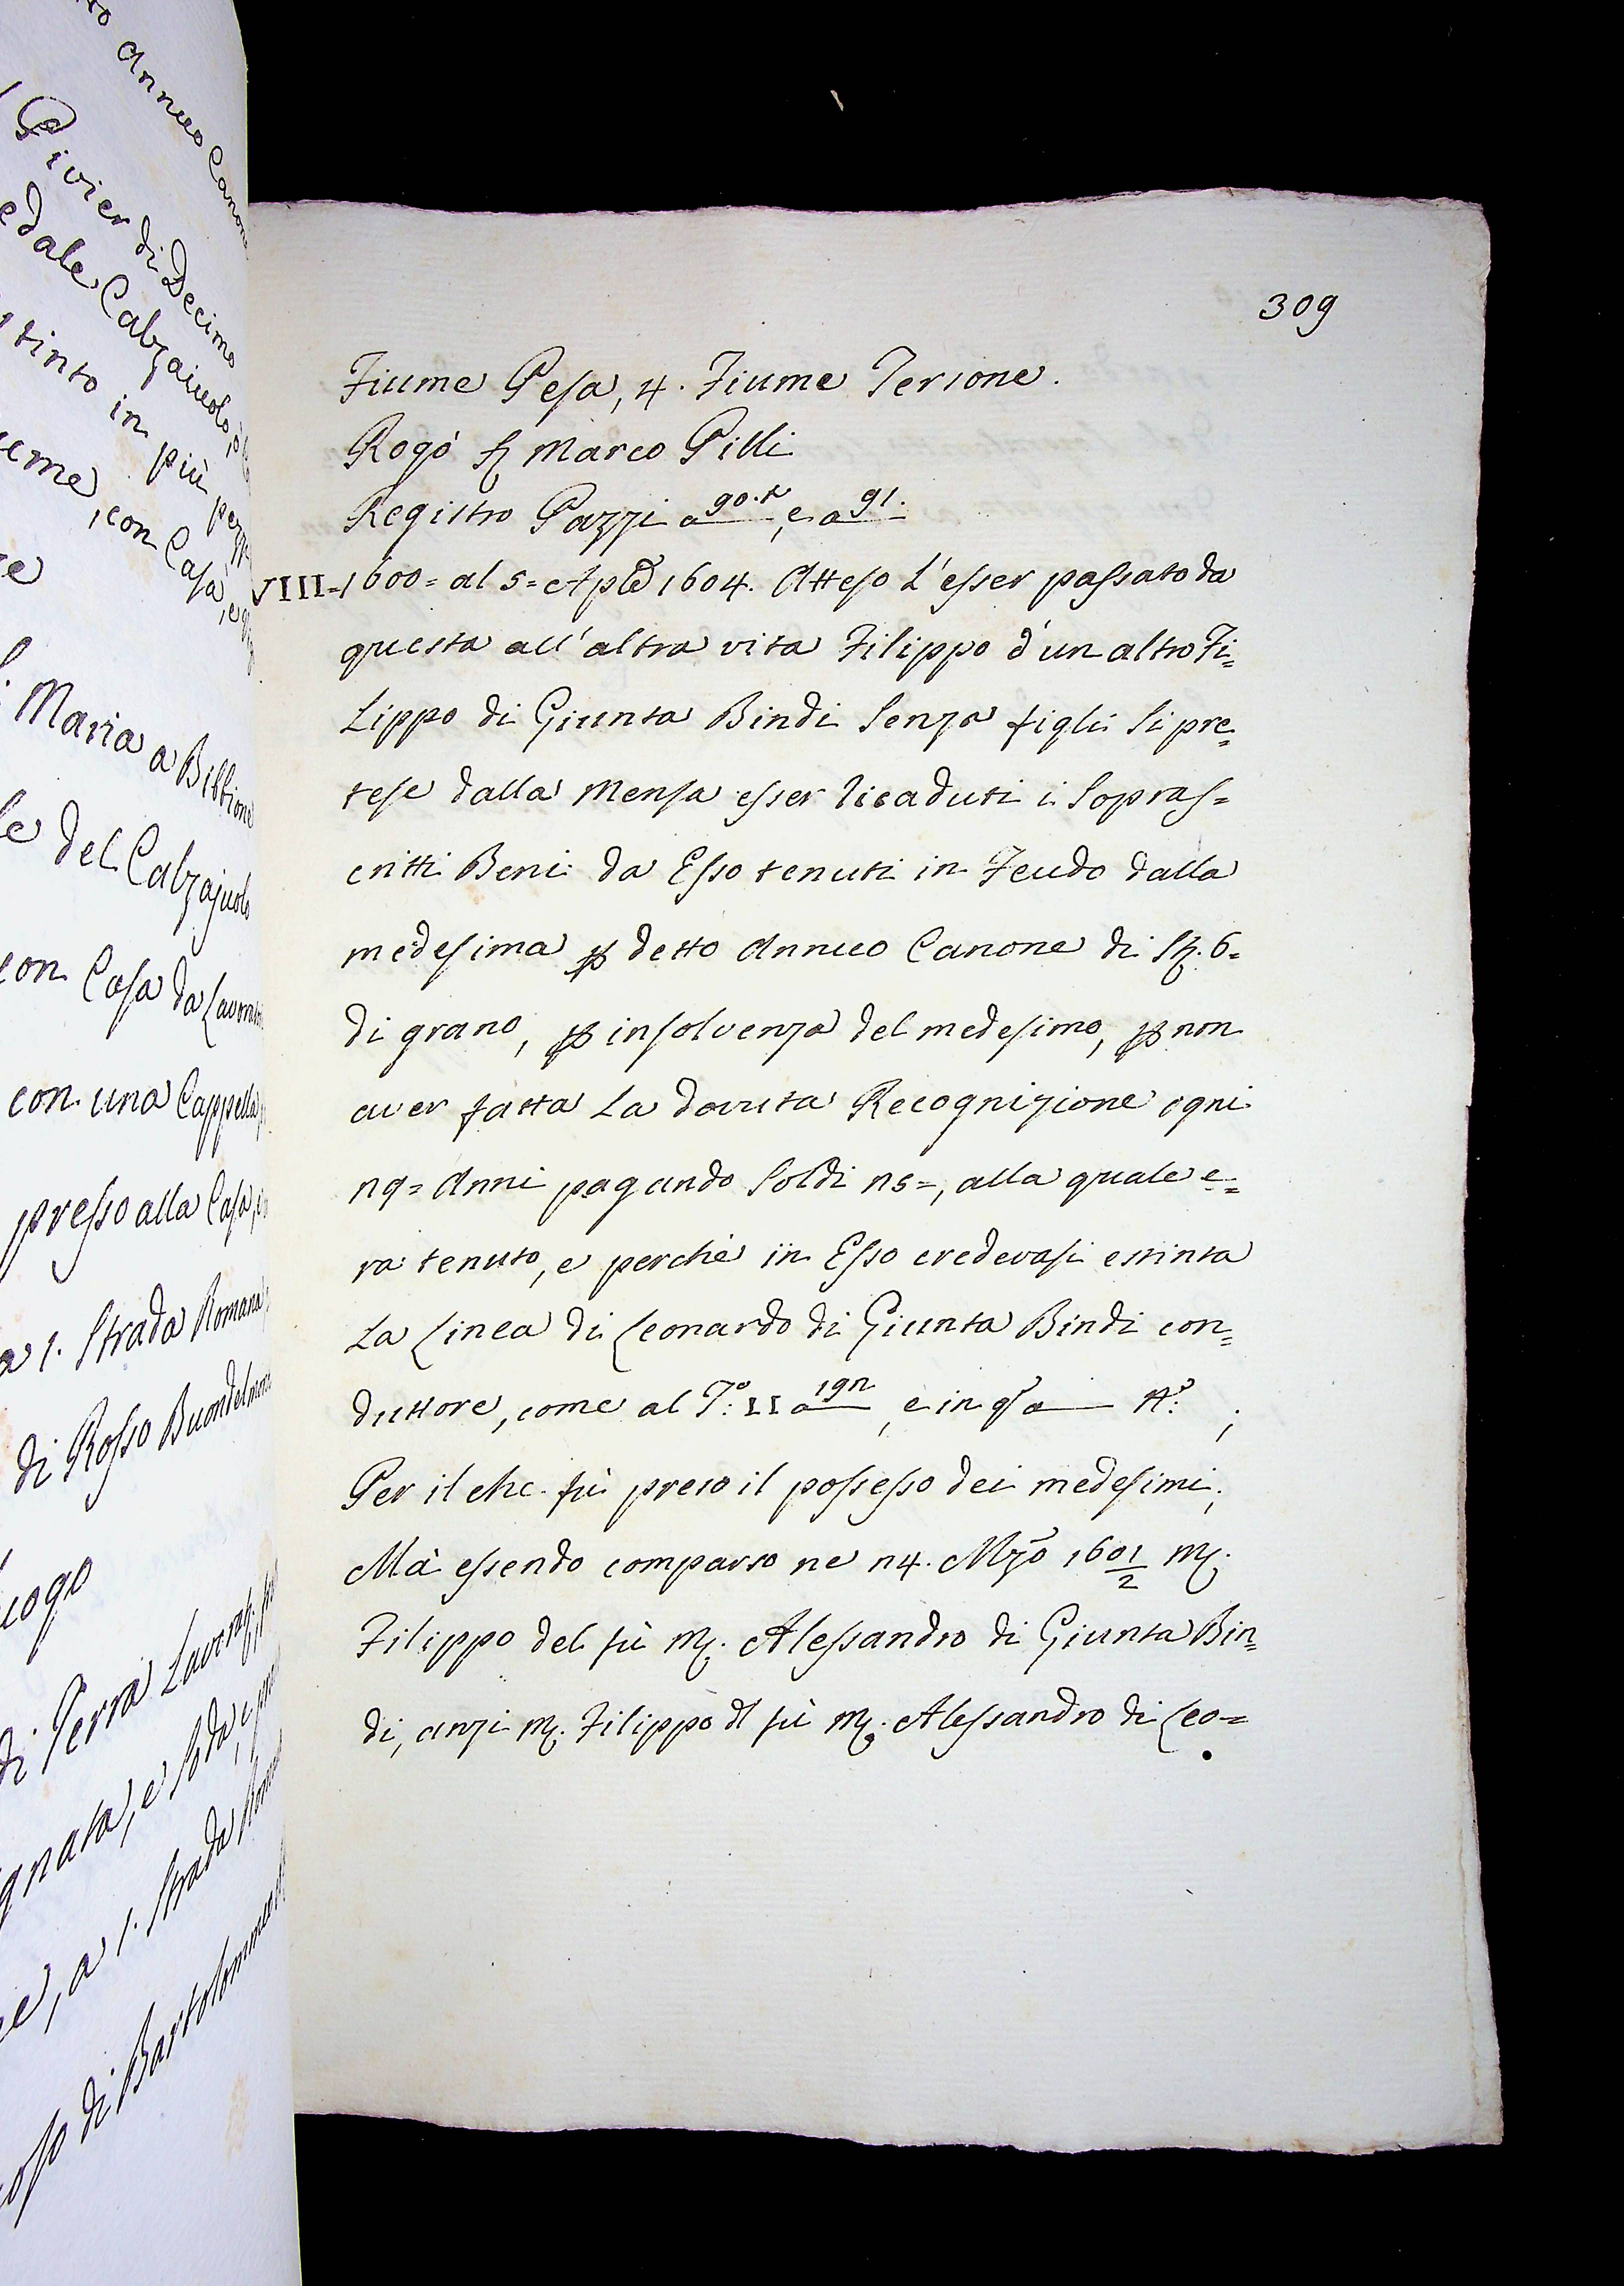 309
Fiume Pesa, 4. Fiume Terzone.
Rogò Marco Pilli
Registro Pazzi a 90.t, e a 91.
VIII=1600= al 5= Aple 1604. Atteso L'esser passato da
questa all'altra vita Filippo d'un altro Fi=
Lippo di Giunta Bindi Senza figli Si pre=
tese dalla Mensa esser licaduti i Sopras=
critti Beni da Esso tenuti in Feudo dalla
medesima ꝑ detto Annuo Canone di St. 6=
di grano, ꝑ insolvenza del medesimo, ꝑ non
aver fatta La dovuta Recognizione ogni
29= Anni pagando Soldi 25=, alla quale e=
ra tenuto, e perchè in Esso credevasi estinta
La Linea di Leonardo di Giunta Bindi con=
duttore, come al T.º II a 192, e in qº a N.º ;
Per il che fù preso il possesso dei medesimi;
Mà essendo comparso ne 24. Mzõ 1601/2 Mſ.
Filippo del fù Mſ. Alessandro di Giunta Bin=
di, anzi Mſ. Filippo dl fù Mſ. Alessandro di Leo=
Annuo Canone
Pivier di Decimo
edale Calzaiuolo, ò
stinto in più pezzi
eme, con Casa, e
Maria a Bibbione
le del Calzajuolo
con Casa da Lavorato
con una Cappella
presso alla Casa,
a 1. Strada Romana
di Rosso Buondelmon
uogo
di Terra Lavorat.
gnata, e Soda, e
e, a 1. Strada Rom
oso di Bartolommeo